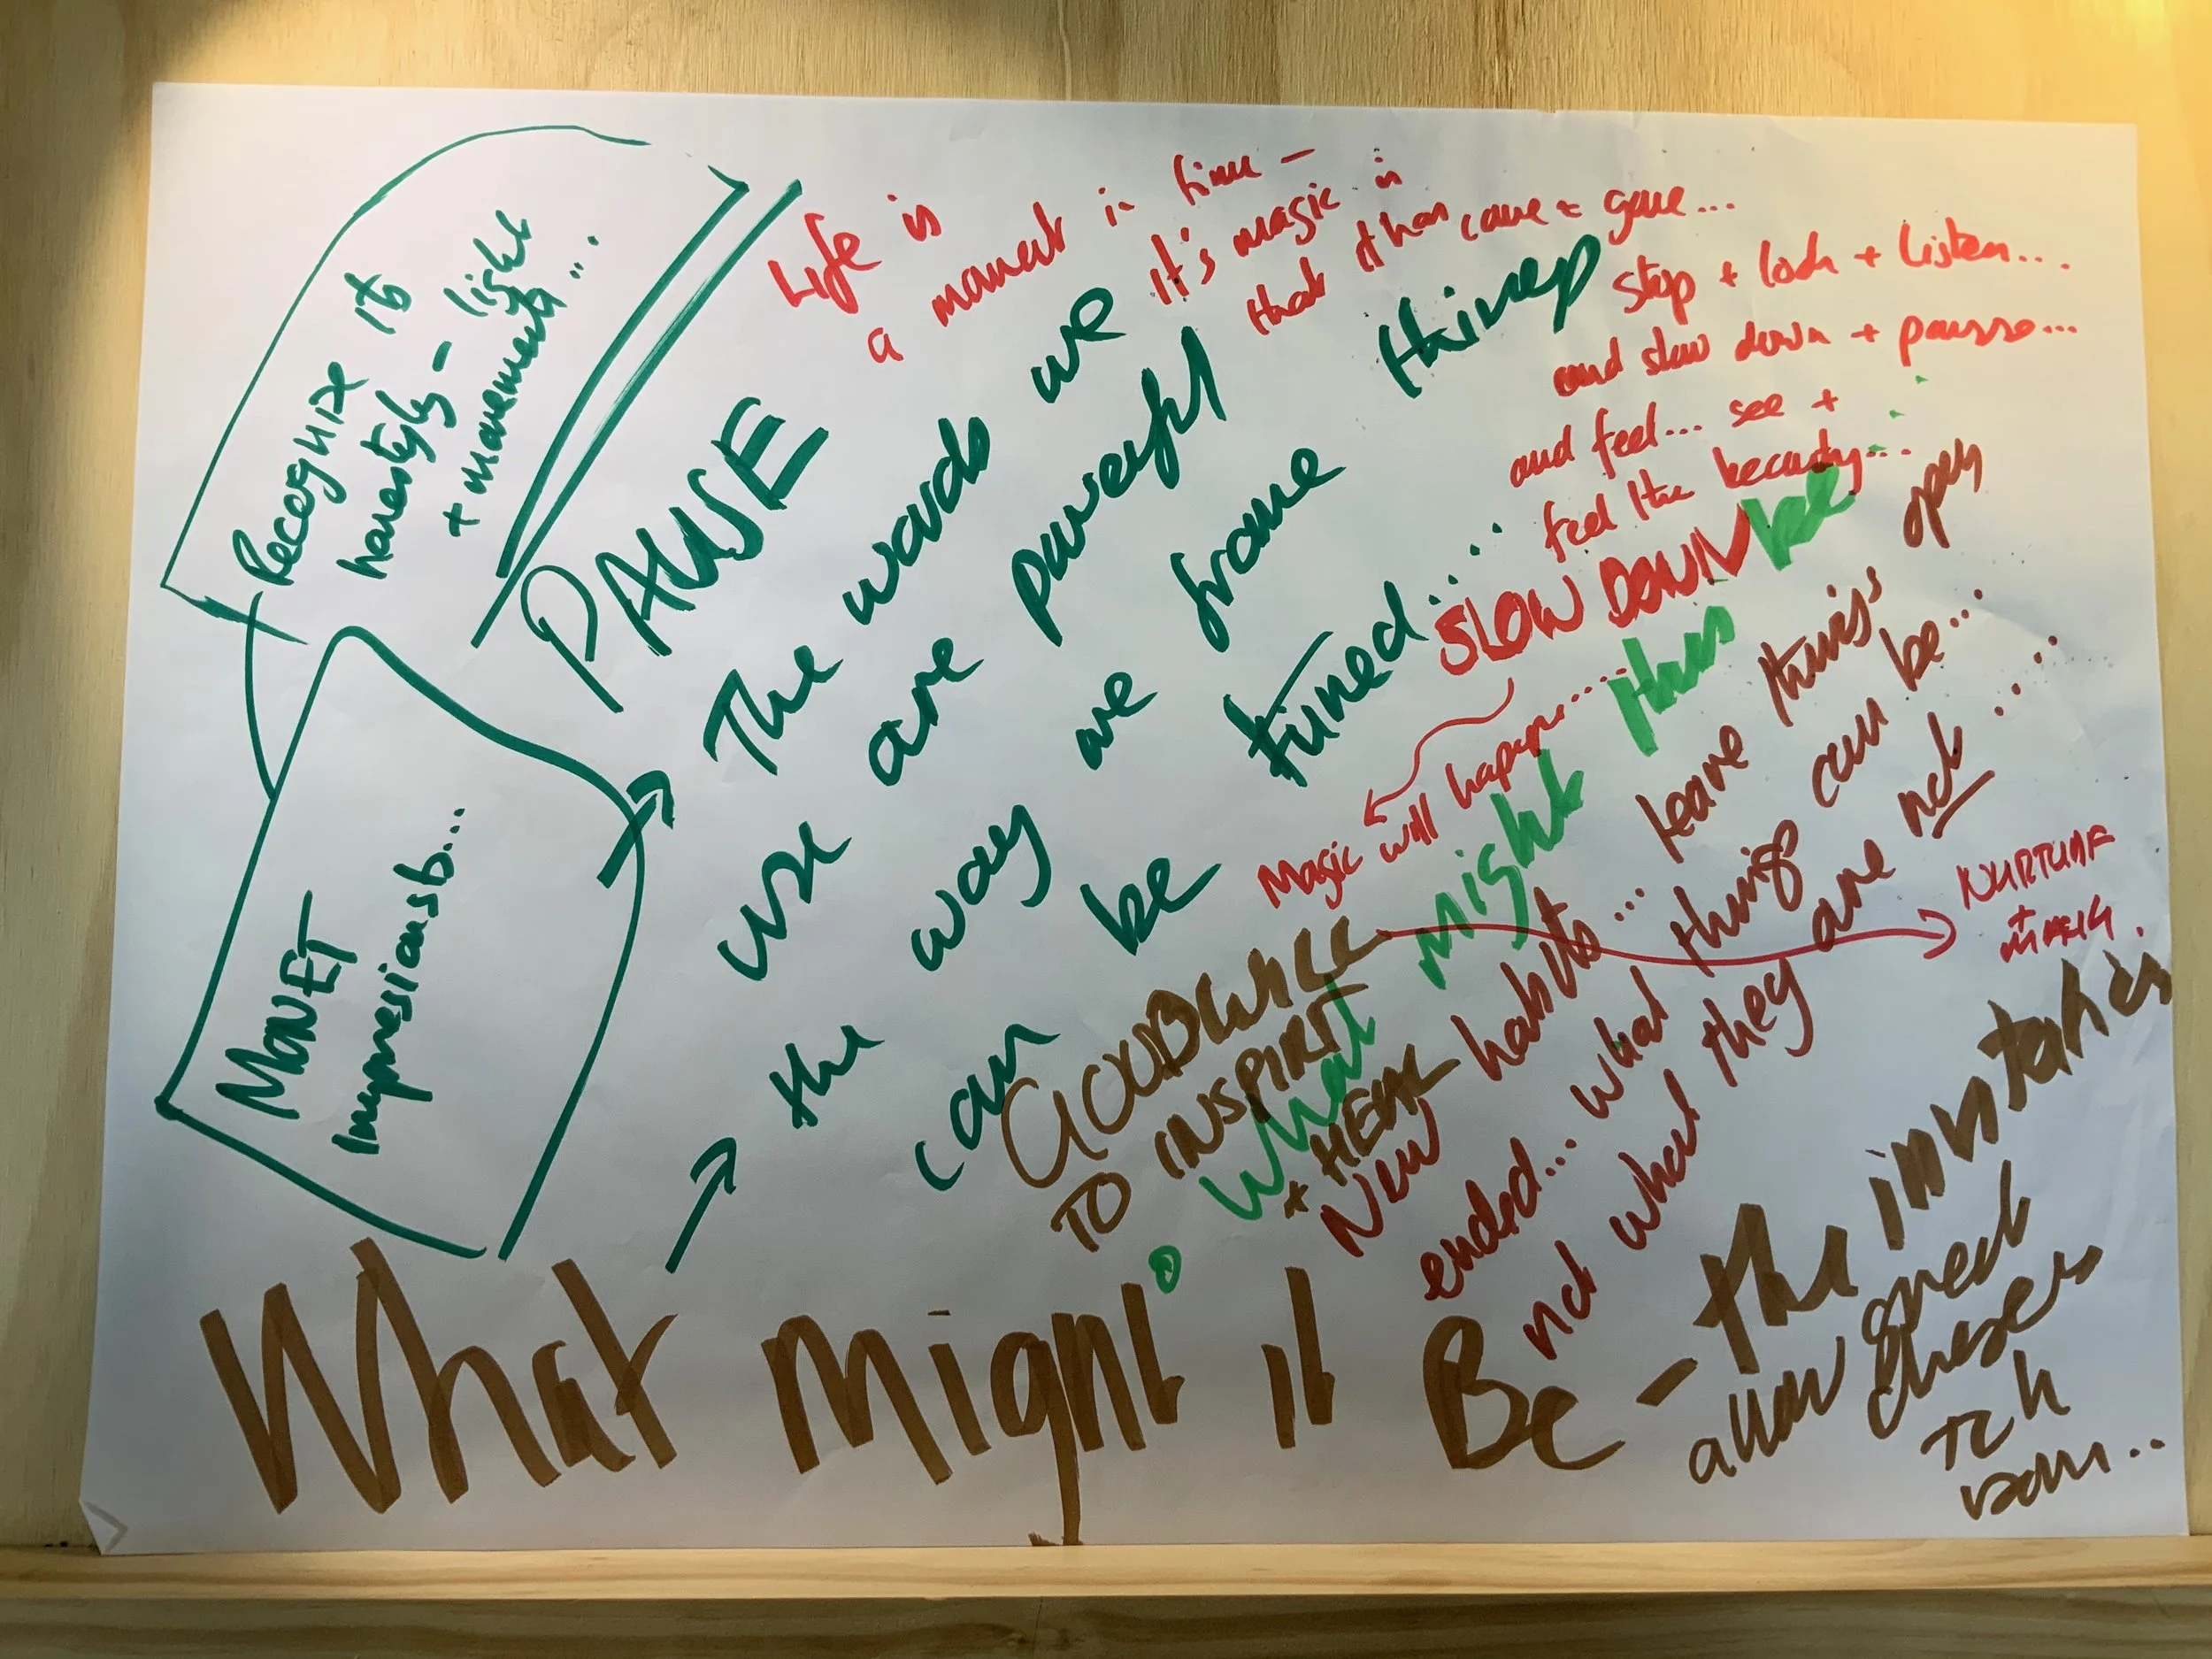 Recognize its
honestly - light
+ movements...
MONET
Impressionist...
PAUSE
The words we
use are powerful
the way we frame things
can be tuned...
Life is
a moment in time -
it's magic is
that it has come + gone...
stop + look + listen...
and slow down + pause...
and feel... see +
feel the beauty...
SLOW DOWN
Magic will happen.....
What might this be
GOODWILL
TO INSPIRE
+ HEAL
NURTURE
New habits... leave things open
ended... what things can be...
not what they are not.....
What Might it Be - the invitation
allow